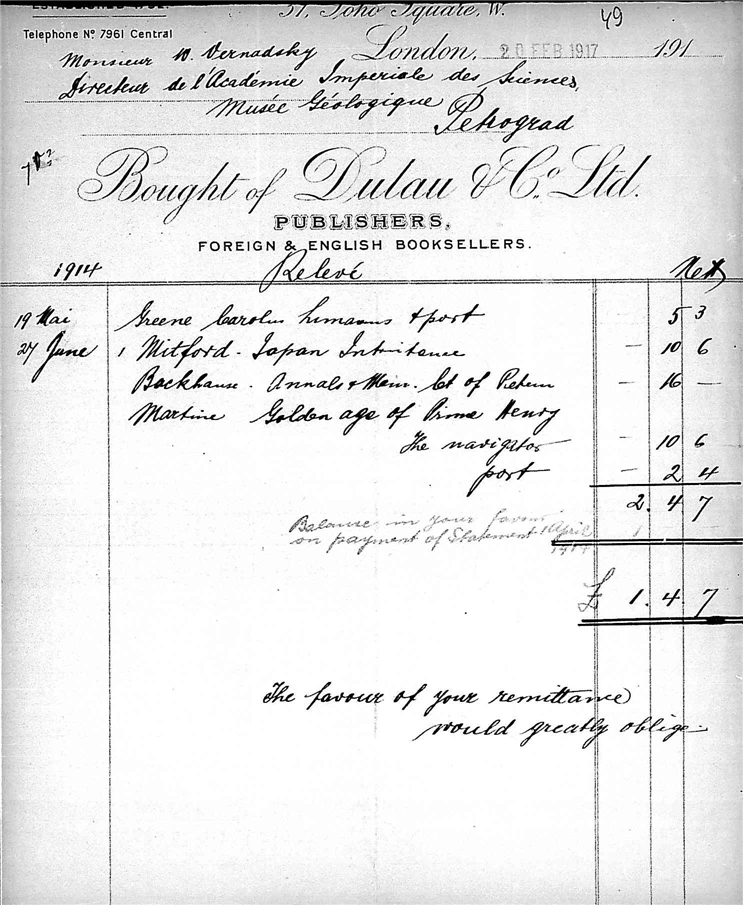 ESTABLISHED 1792.
37, Soho Square, W.
49
Telephone Nº 7961 Central
London, 20 FEB 1917 191
Monsieur W. Vernadsky
Directeur de l'Académie Imperiale des Sciences,
Musée Géologique
Petrograd
Bought of Dulau & Co. Ltd.
PUBLISHERS,
FOREIGN & ENGLISH BOOKSELLERS.
1914 Relevé Nett
19 Mai Greene Carolus + port 5 3
27 June 1 Mitford - Japan Inheritance — 10 6
Backhouse - Annals & Mem. Ct of — 16 —
Martins Golden age of Prince Henry
The navigator — 10 6
port — 2 4
2. 4 7
Balance in your favour
on payment of Statement 1 April
1914 1
£ 1. 4. 7
The favour of your remittance
would greatly oblige